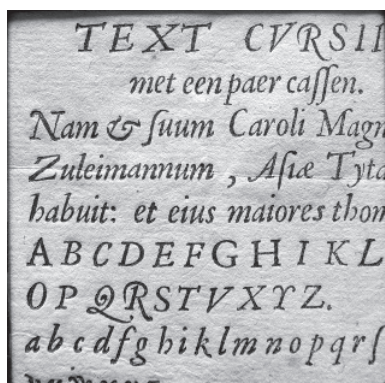 TEXT CVRSII
met een paer caſſen.
Nam & ſuum Caroli Magn
Zuleimannum , Aſiæ Tyta
habuit: et eius maiores thom
A B C D E F G H I K L
O P Q R S T V X Y Z.
a b c d f g h i k l m n o p q r ſ